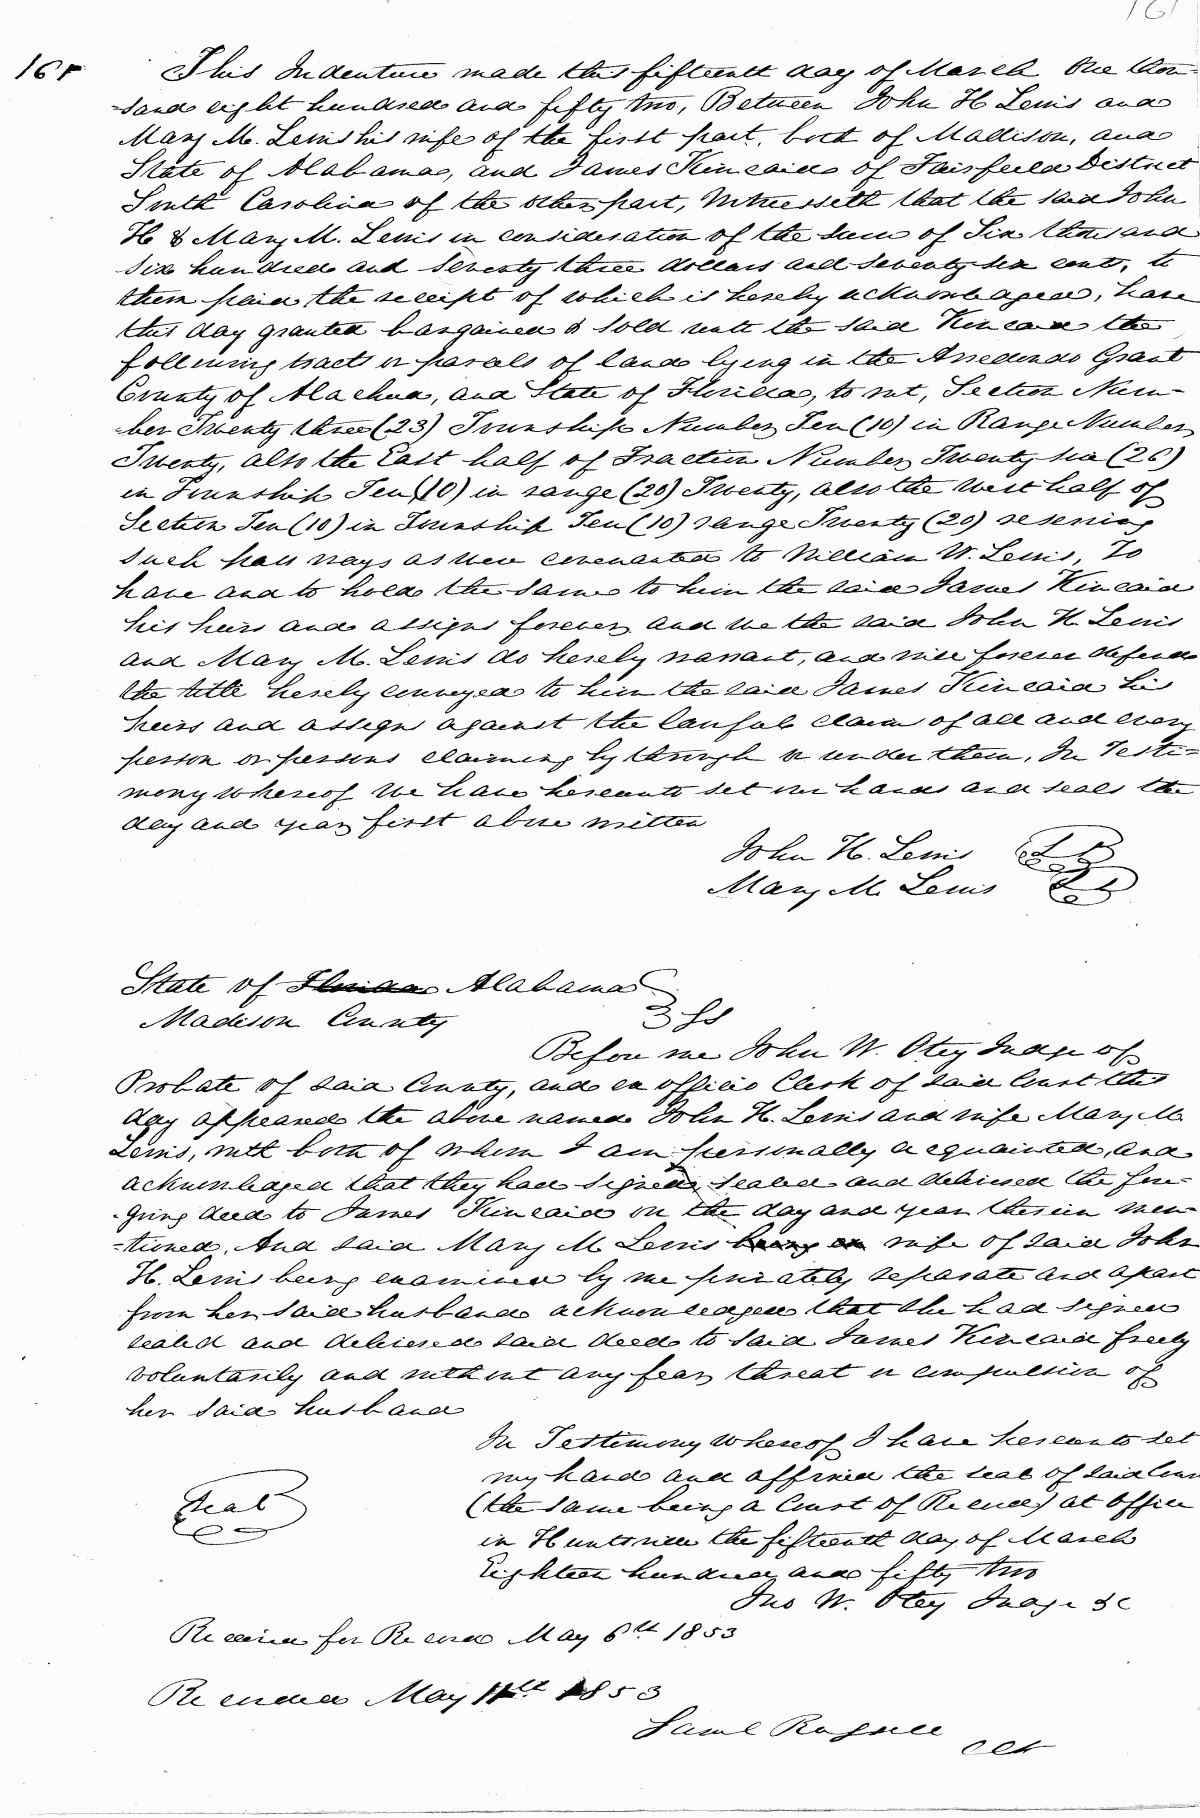 161
This Indenture made this fifteenth day of March One thou-
-sand eight hundred and fifty two, Between John H Lewis and
Mary M. Lewis his wife of the first part, both of Madison, and
State of Alabama, and James Kincaid of Fairfield District
South Carolina of the other part, Witnesseth that the said John
H & Mary M. Lewis in consideration of the sum of Six thousand
six hundred and seventy three dollars and seventy six cents, to
them paid, the receipt of which is hereby acknowledged, have
this day granted bargained & sold unto the said Kincaid the
following tracts or parcels of land lying in the Arredondo Grant
County of Alachua, and State of Florida, to wit, Section Num-
-ber Twenty three (23) Township Number Ten (10) in Range Number
Twenty, also the East half of Fraction Number Twenty six (26)
in Township Ten (10) in range (20) Twenty, also the West half of
Section Ten (10) in Township Ten (10) range Twenty (20) reserving
such pass ways as were covenanted to William W. Lewis, To
have and to hold the same to him the said James Kincaid
his heirs and assigns forever, and we the said John H. Lewis
and Mary M. Lewis do hereby warrant, and will forever defend
the title hereby conveyed to him the said James Kincaid his
heirs and assigns against the lawful claim of all and every
person or persons claiming by through or under them, In Testi-
mony whereof we have hereunto set our hands and seals the
day and year first above written
John H. Lewis L S
Mary M Lewis L S
State of Florida Alabama
Madison County } SS
Before me John W. Otey Judge of
Probate of said County, and ex officio Clerk of said Court this
day appeared the above named John H. Lewis and wife Mary M
Lewis, with both of whom I am personally acquainted, and
acknowledged that they had signed sealed and delivered the fore-
-going deed to James Kincaid on the day and year therein men-
-tioned, And said Mary M Lewis being an wife of said John
H. Lewis being examined by me privately separate and apart
from her said husband acknowledged that she had signed
sealed and delivered said deed to said James Kincaid freely
voluntarily and without any fear, threat or compulsion of
her said husband
In Testimony whereof I have hereunto set
my hand and affixed the seal of said Court
Seal
(the same being a Court of Record) at office
in Huntsville the fifteenth day of March
Eighteen hundred and fifty two
Jno W. Otey Judge &c
Received for Record May 6th 1853
Recorded May 11th 1853
Saml Russell
Clk